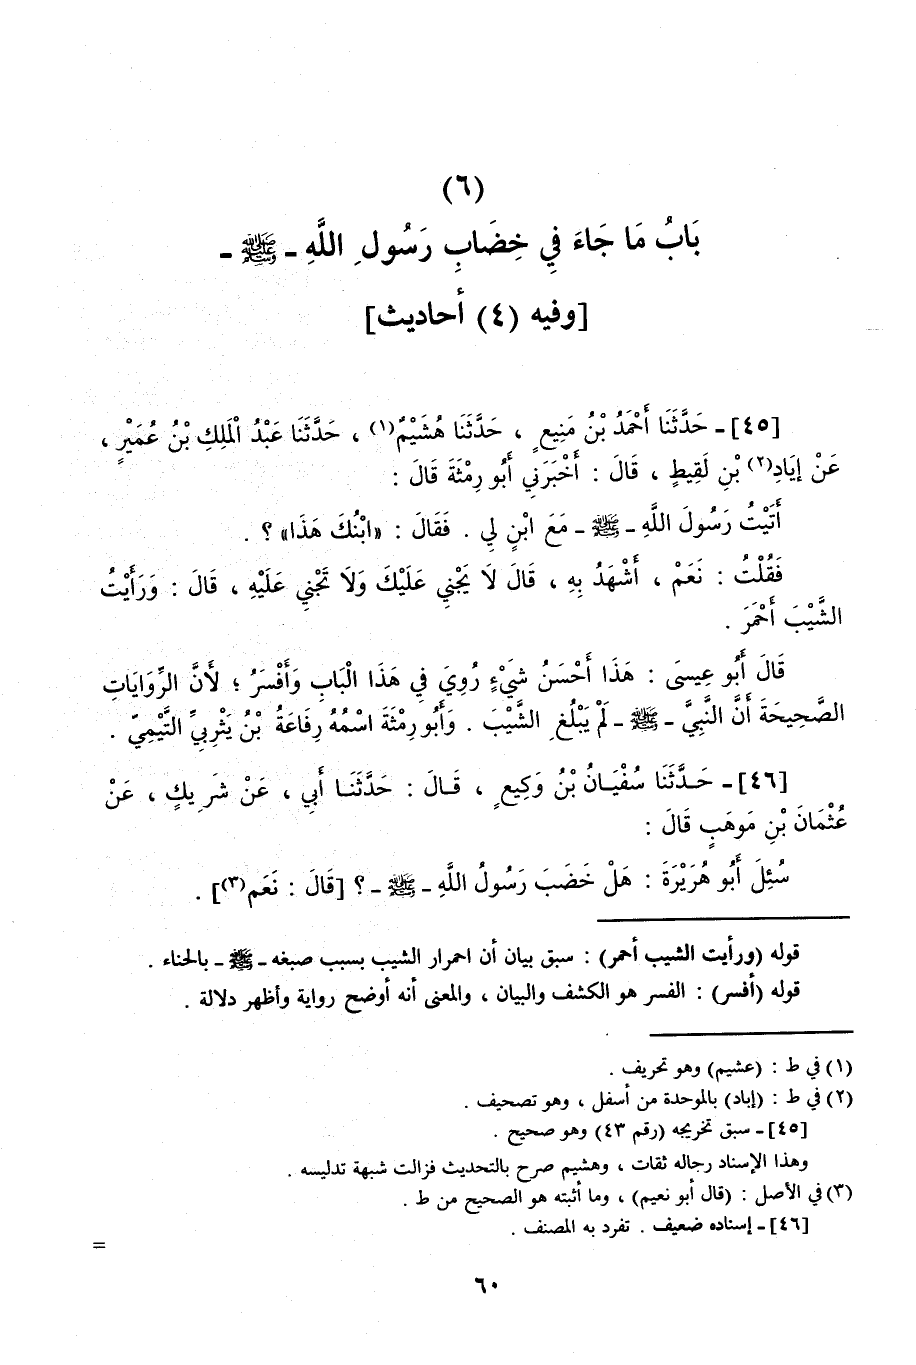 (٦)
بَابُ مَا جَاءَ فِي خِضَابِ رَسُولِ اللَّهِ - ﷺ -
[وفيه (٤) أحاديث]
[٤٥] - حَدَّثَنَا أَحْمَدُ بْنُ مَنِيعٍ ، حَدَّثَنَا هُشَيْمٌ(١) ، حَدَّثَنَا عَبْدُ الْمَلِكِ بْنُ عُمَيْرٍ ،
عَنْ إِيَادِ(٢) بْنِ لَقِيطٍ ، قَالَ : أَخْبَرَنِي أَبُو رِمْثَةَ قَالَ :
أَتَيْتُ رَسُولَ اللَّهِ - ﷺ - مَعَ ابْنٍ لِي . فَقَالَ : «ابْنُكَ هَذَا» ؟ .
فَقُلْتُ : نَعَمْ ، أَشْهَدُ بِهِ ، قَالَ لَا يَجْنِي عَلَيْكَ وَلَا تَجْنِي عَلَيْهِ ، قَالَ : وَرَأَيْتُ
الشَّيْبَ أَحْمَرَ .
قَالَ أَبُو عِيسَى : هَذَا أَحْسَنُ شَيْءٍ رُوِيَ فِي هَذَا الْبَابِ وَأَفْسَرُ ؛ لَأَنَّ الرِّوَايَاتِ
الصَّحِيحَةَ أَنَّ النَّبِيَّ - ﷺ - لَمْ يَبْلُغِ الشَّيْبَ . وَأَبُو رِمْثَةَ اسْمُهُ رِفَاعَةُ بْنُ يَثْرِبيِّ التَّيْمِيّ .
[٤٦] - حَدَّثَنَا سُفْيَانُ بْنُ وَكِيعٍ ، قَالَ : حَدَّثَنَا أَبِي ، عَنْ شَرِيكٍ ، عَنْ
عُثْمَانَ بْنِ مَوهَبٍ قَالَ :
سُئِلَ أَبُو هُرَيْرَةَ : هَلْ خَضَبَ رَسُولُ اللَّهِ - ﷺ - ؟ [قَالَ : نَعَم(٣)] .
قوله (ورأيت الشيب أحمر) : سبق بيان أن احمرار الشيب بسبب صبغه - ﷺ - بالحناء .
قوله (أفسر) : الفسر هو الكشف والبيان ، والمعنى أنه أوضح رواية وأظهر دلالة .
(١) في ط : (عشيم) وهو تحريف .
(٢) في ط : (إباد) بالموحدة من أسفل ، وهو تصحيف .
[٤٥] - سبق تخريجه (رقم ٤٣) وهو صحيح .
وهذا الإسناد رجاله ثقات ، وهشيم صرح بالتحديث فزالت شبهة تدليسه .
(٣) في الأصل : (قال أبو نعيم) ، وما أثبته هو الصحيح من ط .
[٤٦] - إسناده ضعيف . تفرد به المصنف .
=
٦٠